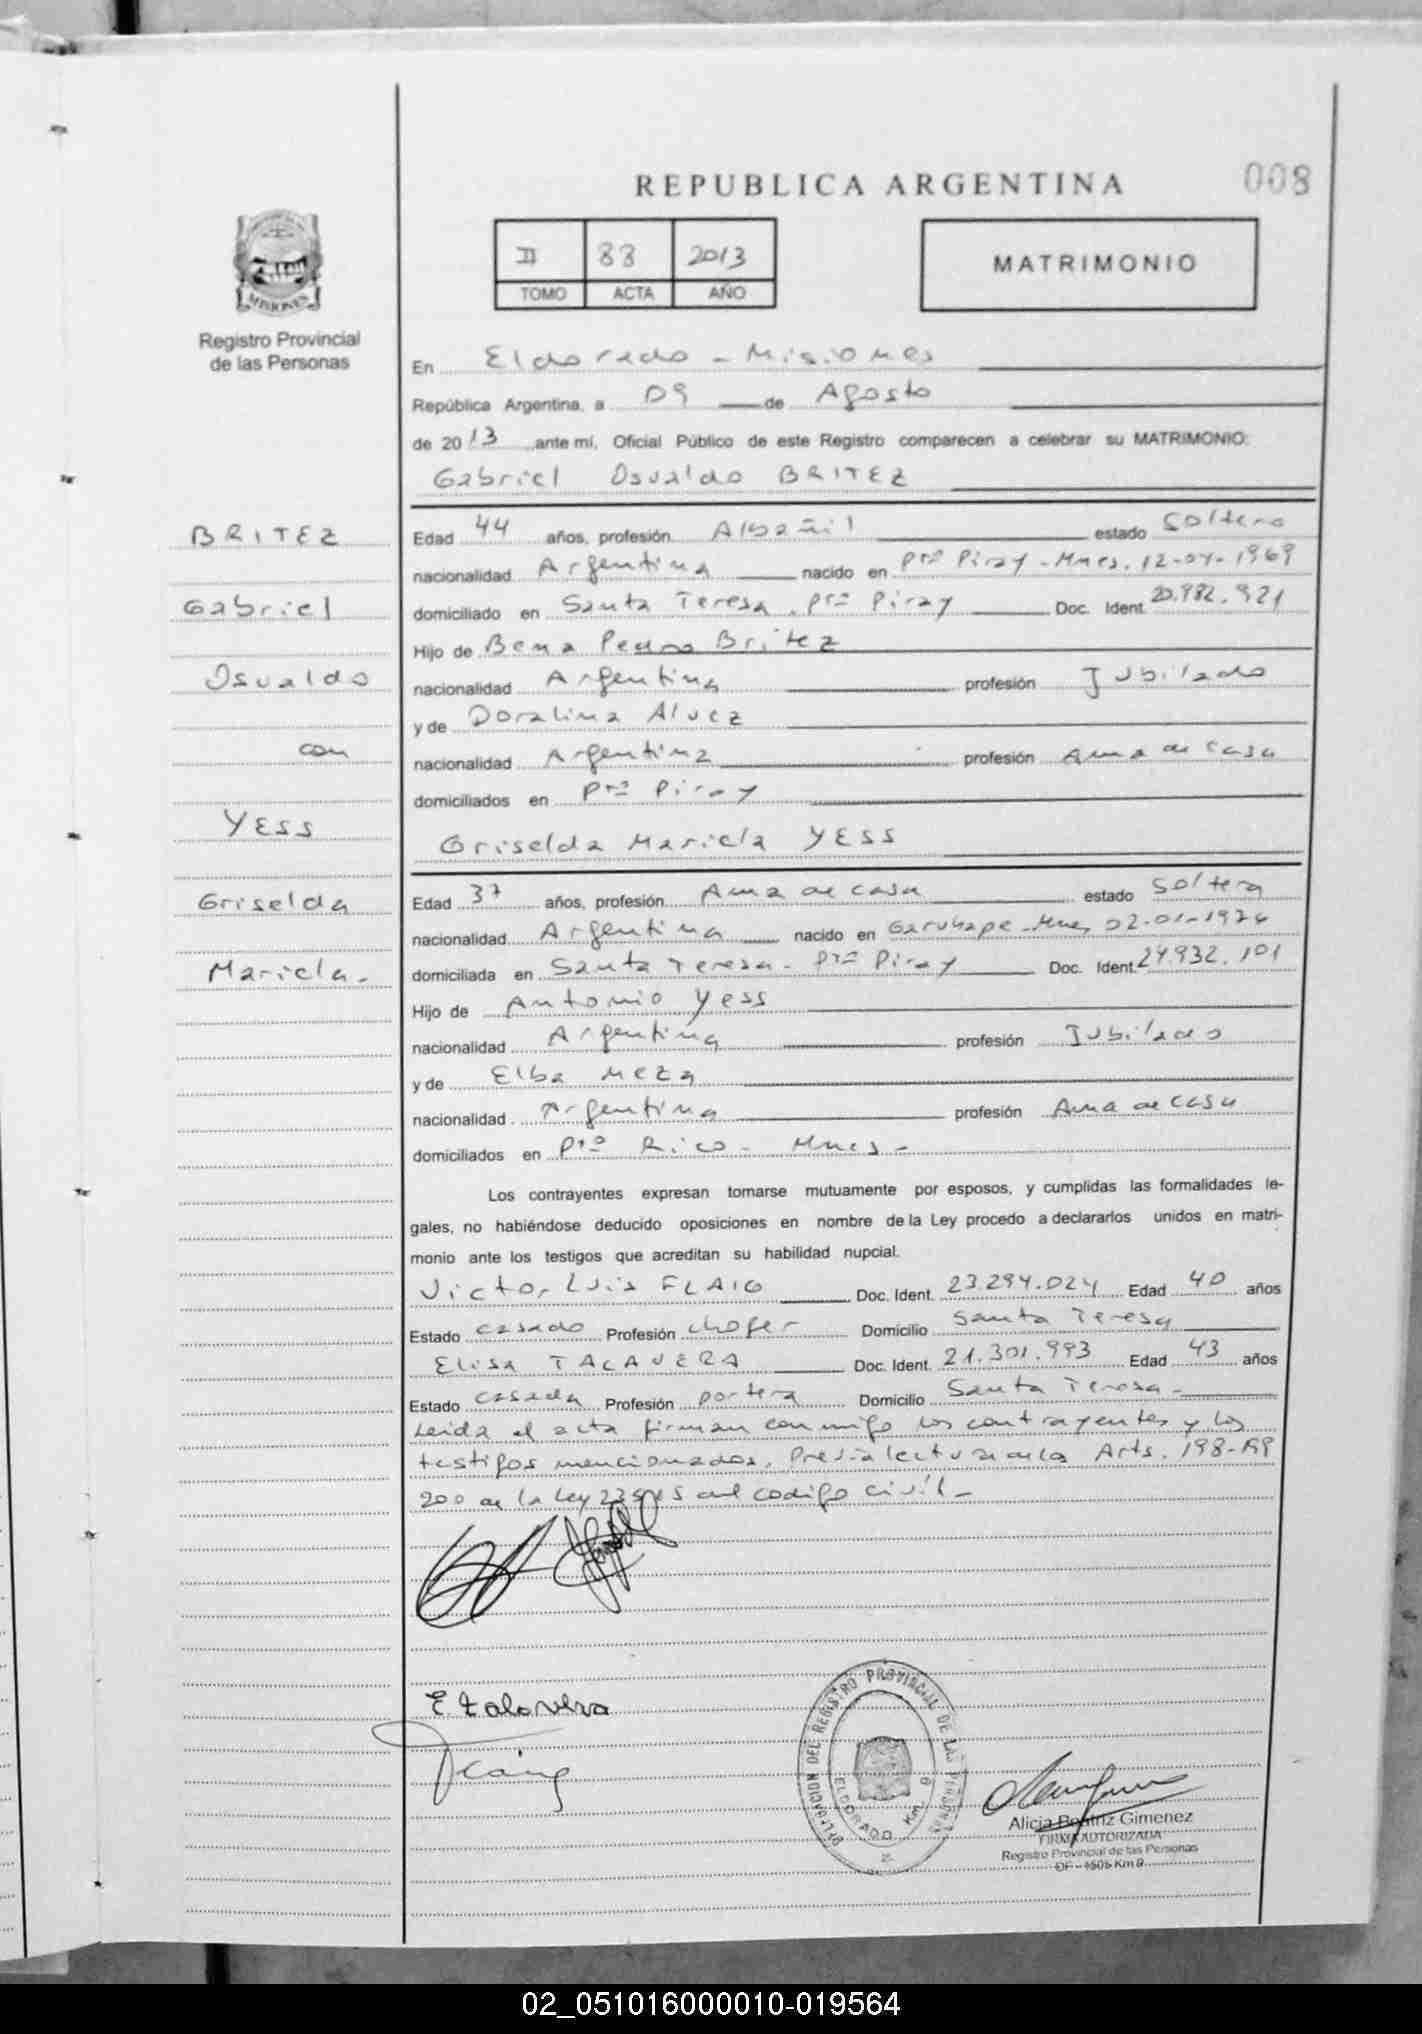 REPUBLICA ARGENTINA
008
II 88 2013
TOMO ACTA AÑO
MATRIMONIO
MISIONES
Registro Provincial
de las Personas
En Eldorado - Misiones
República Argentina, a 09 de Agosto
de 2013 ante mí, Oficial Público de este Registro comparecen a celebrar su MATRIMONIO:
Gabriel Osvaldo BRITEZ
BRITEZ
Gabriel
Osvaldo
con
YESS
Griselda
Mariela.
Edad 44 años, profesión Albañil estado Soltero
nacionalidad Argentina nacido en Pto Piray - Mnes. 12-04-1969
domiciliado en Santa Teresa. Pto Piray Doc. Ident. 20.982.921
Hijo de Pedro Britez
nacionalidad Argentina profesión Jubilado
y de Doralina Alvez
nacionalidad Argentina profesión Ama de casa
domiciliados en Pto Piray
Griselda Mariela YESS
Edad 37 años, profesión Ama de casa estado Soltera
nacionalidad Argentina nacido en Garuhape - Mnes 02-01-1976
domiciliada en Santa Teresa - Pto Piray Doc. Ident. 24.932.101
Hijo de Antonio Yess
nacionalidad Argentina profesión Jubilado
y de Elba Meza
nacionalidad Argentina profesión Ama de casa
domiciliados en Pto Rico - Mnes -
Los contrayentes expresan tomarse mutuamente por esposos, y cumplidas las formalidades le-
gales, no habiéndose deducido oposiciones en nombre de la Ley procedo a declararlos unidos en matri-
monio ante los testigos que acreditan su habilidad nupcial.
Victor Luis FLAIG Doc. Ident. 23.294.024 Edad 40 años
Estado casado Profesión chofer Domicilio Santa Teresa
Elisa TALAVERA Doc. Ident. 21.301.993 Edad 43 años
Estado casada Profesión portera Domicilio Santa Teresa -
Leida el acta firman conmigo los contrayentes y los
testigos mencionados. Previa lectura de los Arts. 198-199
200 de la Ley 23515 del codigo civil -
E. Talavera
DELEGACION DEL REGISTRO PROVINCIAL DE LAS PERSONAS
ELDORADO Km. 9
Alicia Beatriz Gimenez
FIRMA AUTORIZADA
Registro Provincial de las Personas
Km 9
02_051016000010-019564